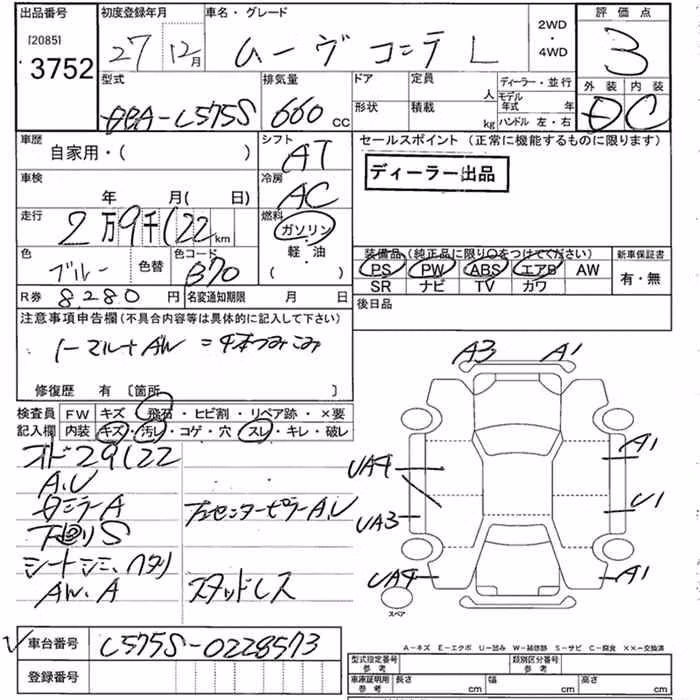 出品番号
[2085]
3752
初度登録年月
27 12月
車名・グレード
ムーヴ コンテ L
2WD
・
4WD
評価点
3
外装 内装
D C
型式
DBA-L575S
排気量
660 CC
ドア
定員
人
形状
積載
kg
ディーラー・並行
モデル年式 年
ハンドル 左・右
車歴
自家用・( )
シフト
AT
セールスポイント (正常に機能するものに限ります)
ディーラー出品
車検
年 月( 日)
冷房
AC
走行
2万9千122km
燃料
ガソリン
・
軽・油
( )
色
ブルー
色替
色コード
B70
装備品(純正品に限り○をつけてください)
PS PW ABS エアB AW
SR ナビ TV カワ
新車保証書
有・無
R券 8,280円
名変通知期限 月 日
後日品
注意事項申告欄(不具合内容等は具体的に記入して下さい)
ノーマルナAW=4本つみこみ
修復歴 有 〔箇所 〕
検査員
記入欄
FW キズ・飛石・ヒビ割・リペア跡・×要
内装 キズ・汚レ・コゲ・穴・スレ・キレ・破レ
オド29122
A.U
センターピラーA.U
下回りS
シートシミ、ヘタリ
AW.A
スタッドレス
A3
A1
A1
UA4
U1
UA3
UA4
A1
スペア
車台番号 L575S-0228573
登録番号
A−キズ E−エクボ U−凹み W−補修跡 S−サビ C−腐食 ××−交換済
型式指定番号
参考
類別区分番号
参考
車庫証明用
参考
長さ cm
幅 cm
高さ cm